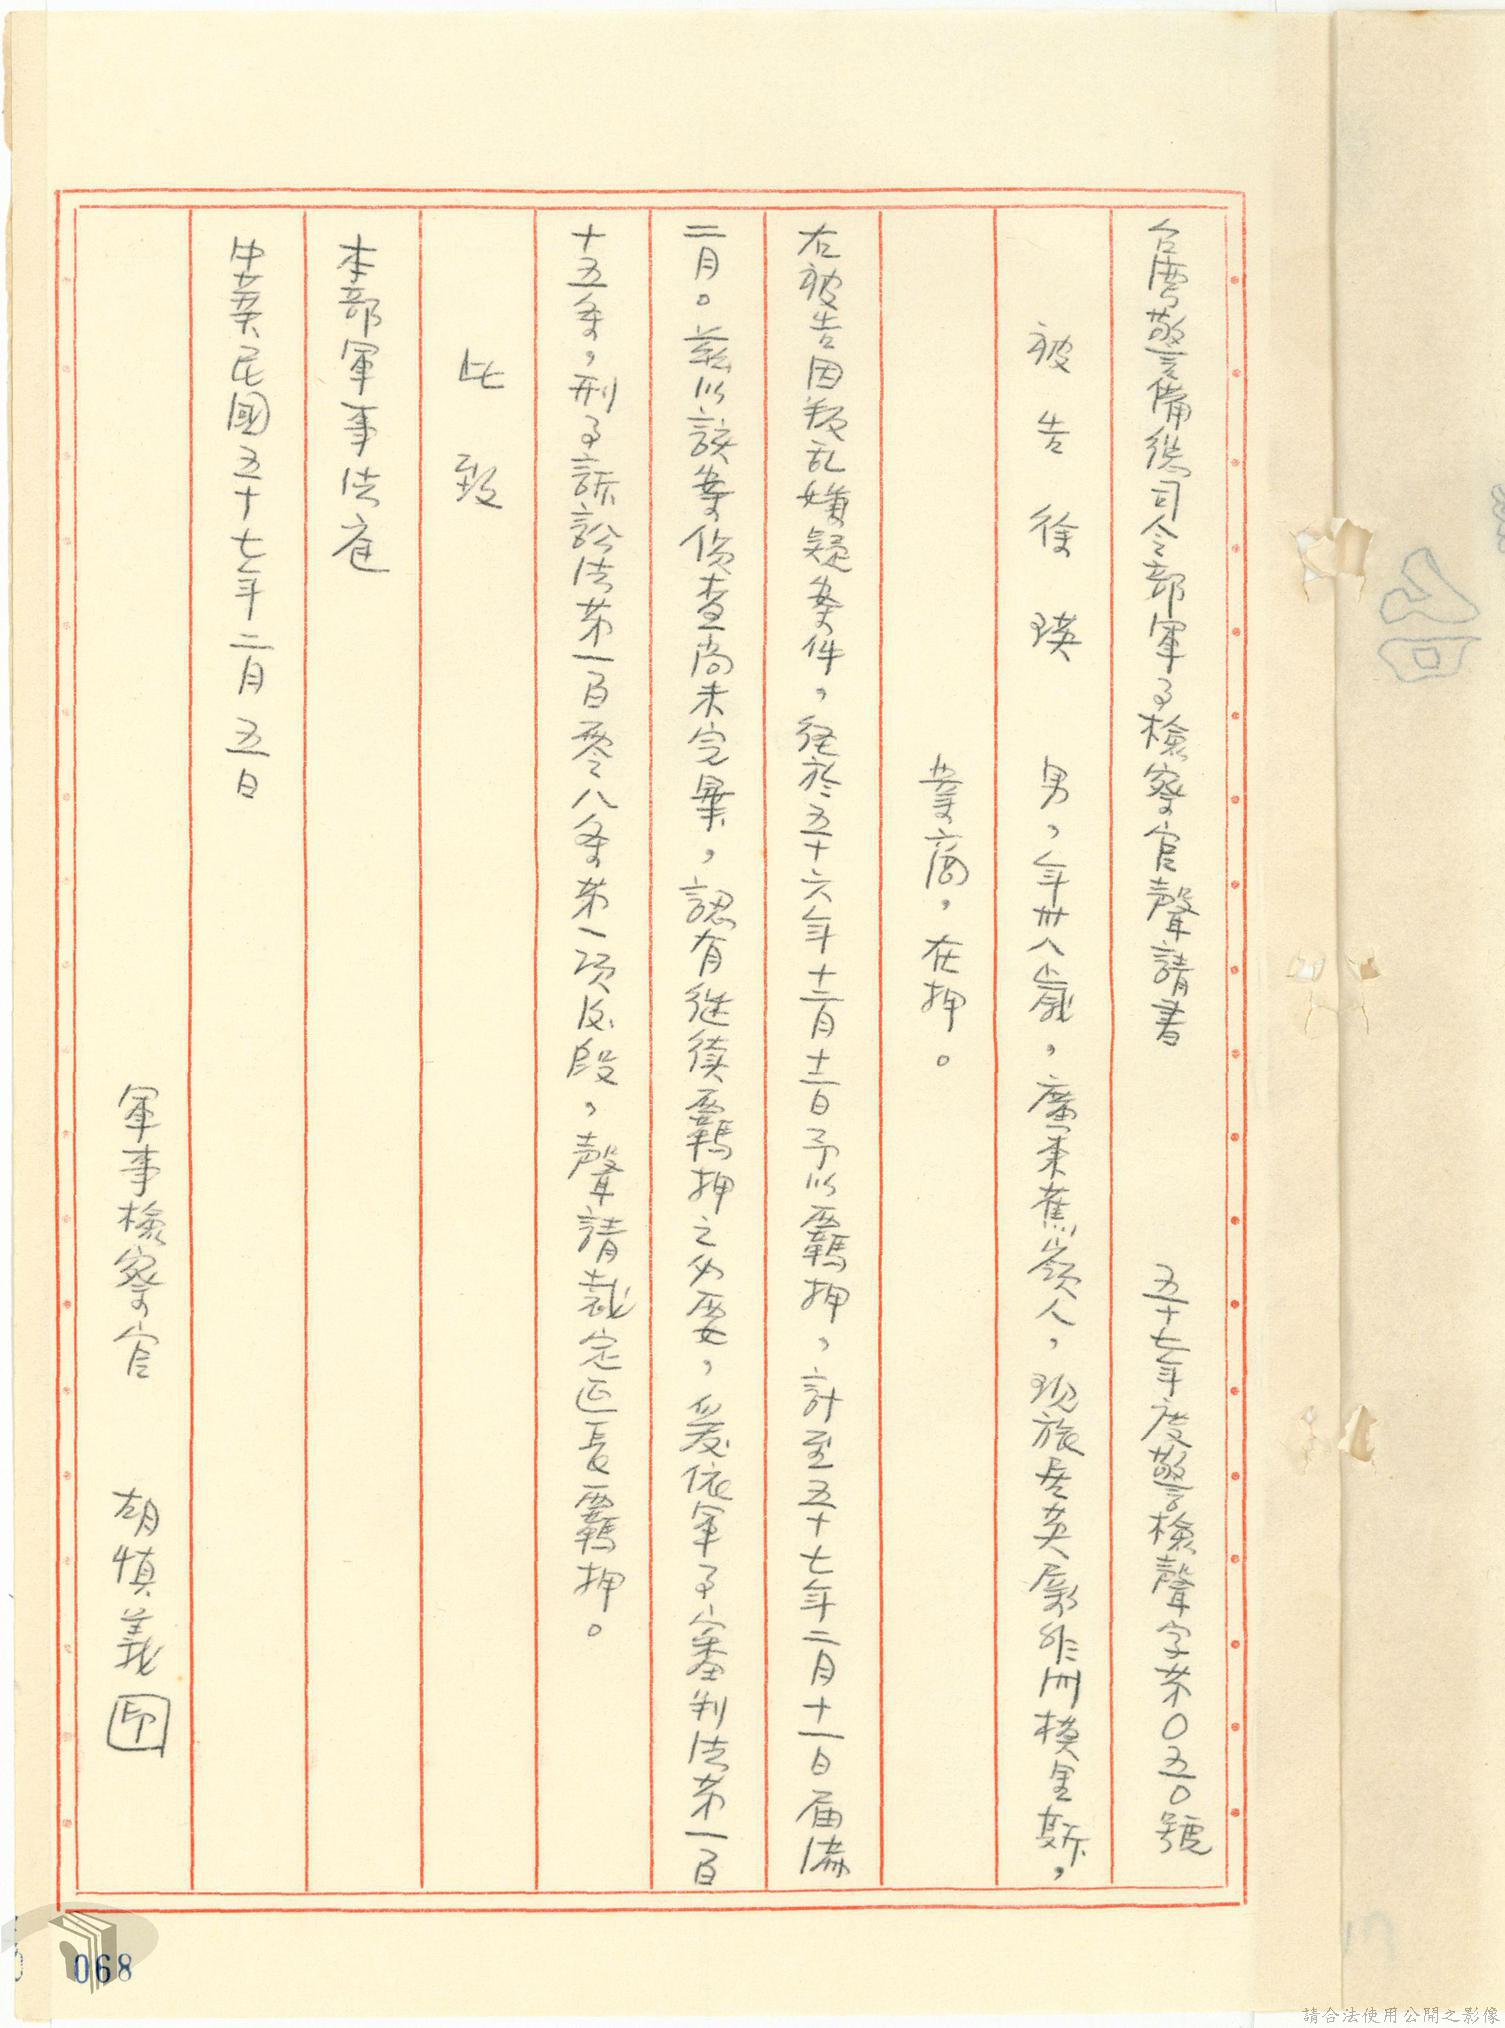 台灣警備總司令部軍事檢察官聲請書 五十七年度警檢聲字第〇五〇號
被告徐瑛 男，年卅八歲，廣東蕉嶺人，現旅居英屬非洲模里斯，
業商，在押。
右被告因叛乱嫌疑案件，經於五十六年十二月十二日予以羈押，計至五十七年二月十一日届滿
二月。茲以該案偵查尚未完畢，認有継續羈押之必要，爰依軍事審判法第一百
十五条，刑事訴訟法第一百零八条第一項后段，聲請裁定延長羈押。
此致
本部軍事法庭
中華民國五十七年二月五日
軍事檢察官 胡慎義 印
068
請合法使用公開之影像